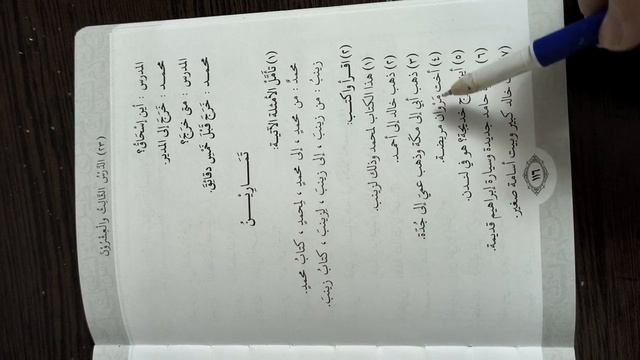 (٢٣) الدَّرْسُ الثَّالِثُ وَالْعِشْرُوْنَ
المدرس : أين إسْحَاقُ؟
محمد : خَرَجَ إلى المدير.
المدرس : متى خَرَجَ؟
محمد : خَرَجَ قَبْلَ خَمْسِ دقائِقَ.
تَمَـارِيْـنُ
(١) تَأَمَّلِ الأَمْثِلَةَ الآتِيَةَ:
محمدٌ : من محمدٍ ، إلى محمدٍ ، لِمحمدٍ ، كتابُ محمدٍ.
زينبُ : من زينبَ ، إلى زينبَ ، لِزينبَ ، كتابُ زينبَ.
(٢) اقرأ واكتب:
(١) هذا الكتاب لمحمد وذلك لزينب.
(٢) ذهب خالد إلى أحمد.
(٣) ذهب أبي إلى مكّة وذهب عمي إلى جُدّة.
(٤) أخت مَرْوان مريضة.
(٥) أين زوج خديجة؟ هو في لندن.
(٦) حامد جديدة وسيارة إبراهيم قديمة.
(٧) خالد كبير وبيت أسامة صغير.
١١٦